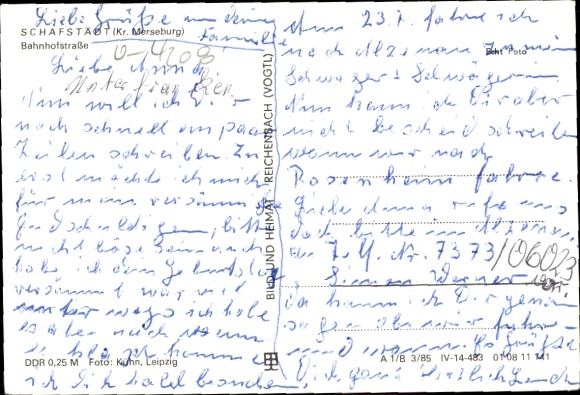 Liebe Grüße an deine
Familie
SCHAFSTÄDT (Kr. Merseburg)
Bahnhofstraße
0-4208
Liebe Anna
Nun will ich Dir
noch schnell ein paar
Zeilen schreiben. Zu
erst möchte ich mich
für mein
bitte
nicht böse sein auch
habe ich den Geburtstag
versäumt war viel
unterwegs ich habe
es aber nach
ich Dich bald besuchen
DDR 0,25 M Foto: Kühn, Leipzig
BILD UND HEIMAT REICHENBACH (VOGTL)
Am 23.7. fahre ich
nach Alzenau zu mein
Schwager & Schwägerin
Echt Foto
Nun kann ich Dir aber
nicht bescheid schreiben
wann wir nach
Rosenheim fahren.
Liebe Anna rufe uns
doch bitte in Alzenau
an Telf. Nr. 7373/06023
Simon Werner
da kann ich Dir genau
sagen ob wir fahren
und wann. Es grüßt
Dich ganz herzlich
A 1/B 3/85 IV-14-483 01 08 11 141